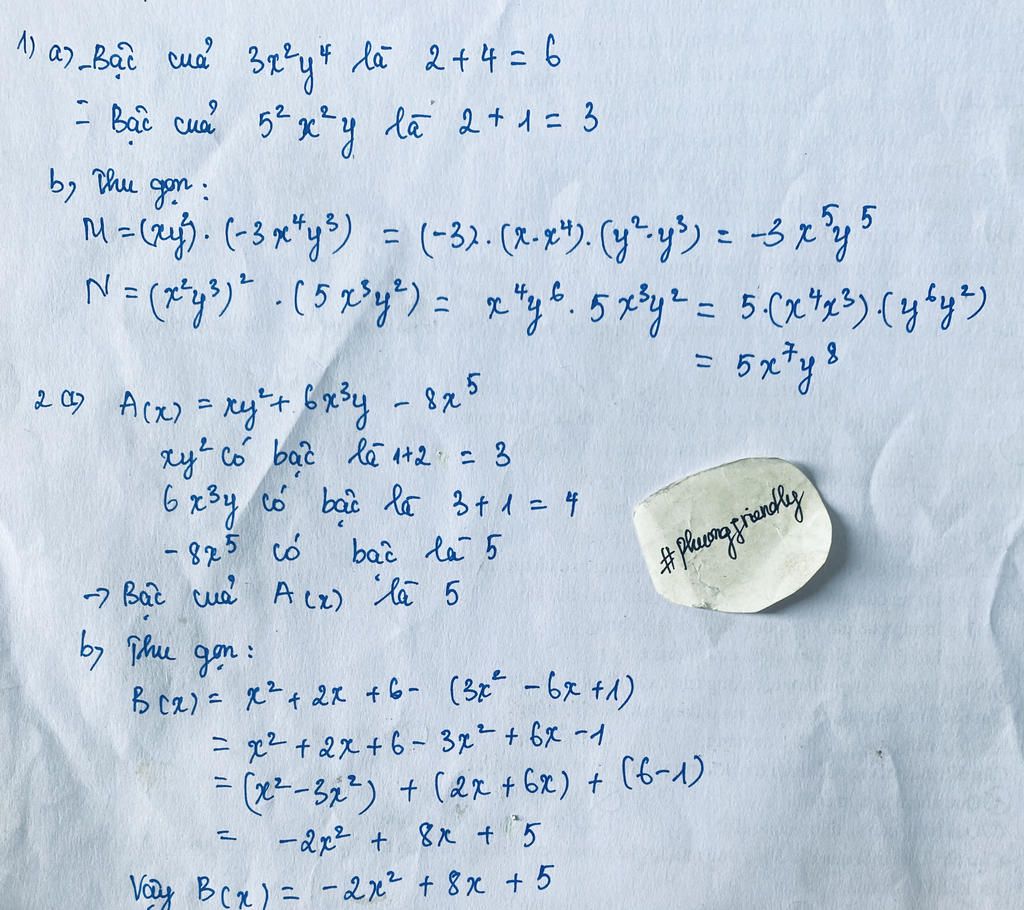 1) a) - Bậc của 3x²y⁴ là 2 + 4 = 6
- Bậc của 5²x²y là 2 + 1 = 3
b, Thu gọn :
M = (xy²) . (-3x⁴y³) = (-3) . (x.x⁴) . (y².y³) = -3x⁵y⁵
N = (x²y³)² . (5x³y²) = x⁴y⁶ . 5x³y² = 5.(x⁴x³).(y⁶y²)
= 5x⁷y⁸
2 a) A(x) = xy² + 6x³y - 8x⁵
xy² có bậc là 1+2 = 3
6x³y có bậc là 3 + 1 = 4
-8x⁵ có bậc là 5
→ Bậc của A(x) là 5
b, Thu gọn :
B(x) = x² + 2x + 6 - (3x² - 6x + 1)
= x² + 2x + 6 - 3x² + 6x - 1
= (x² - 3x²) + (2x + 6x) + (6 - 1)
= -2x² + 8x + 5
Vậy B(x) = -2x² + 8x + 5
#phuongfriendly